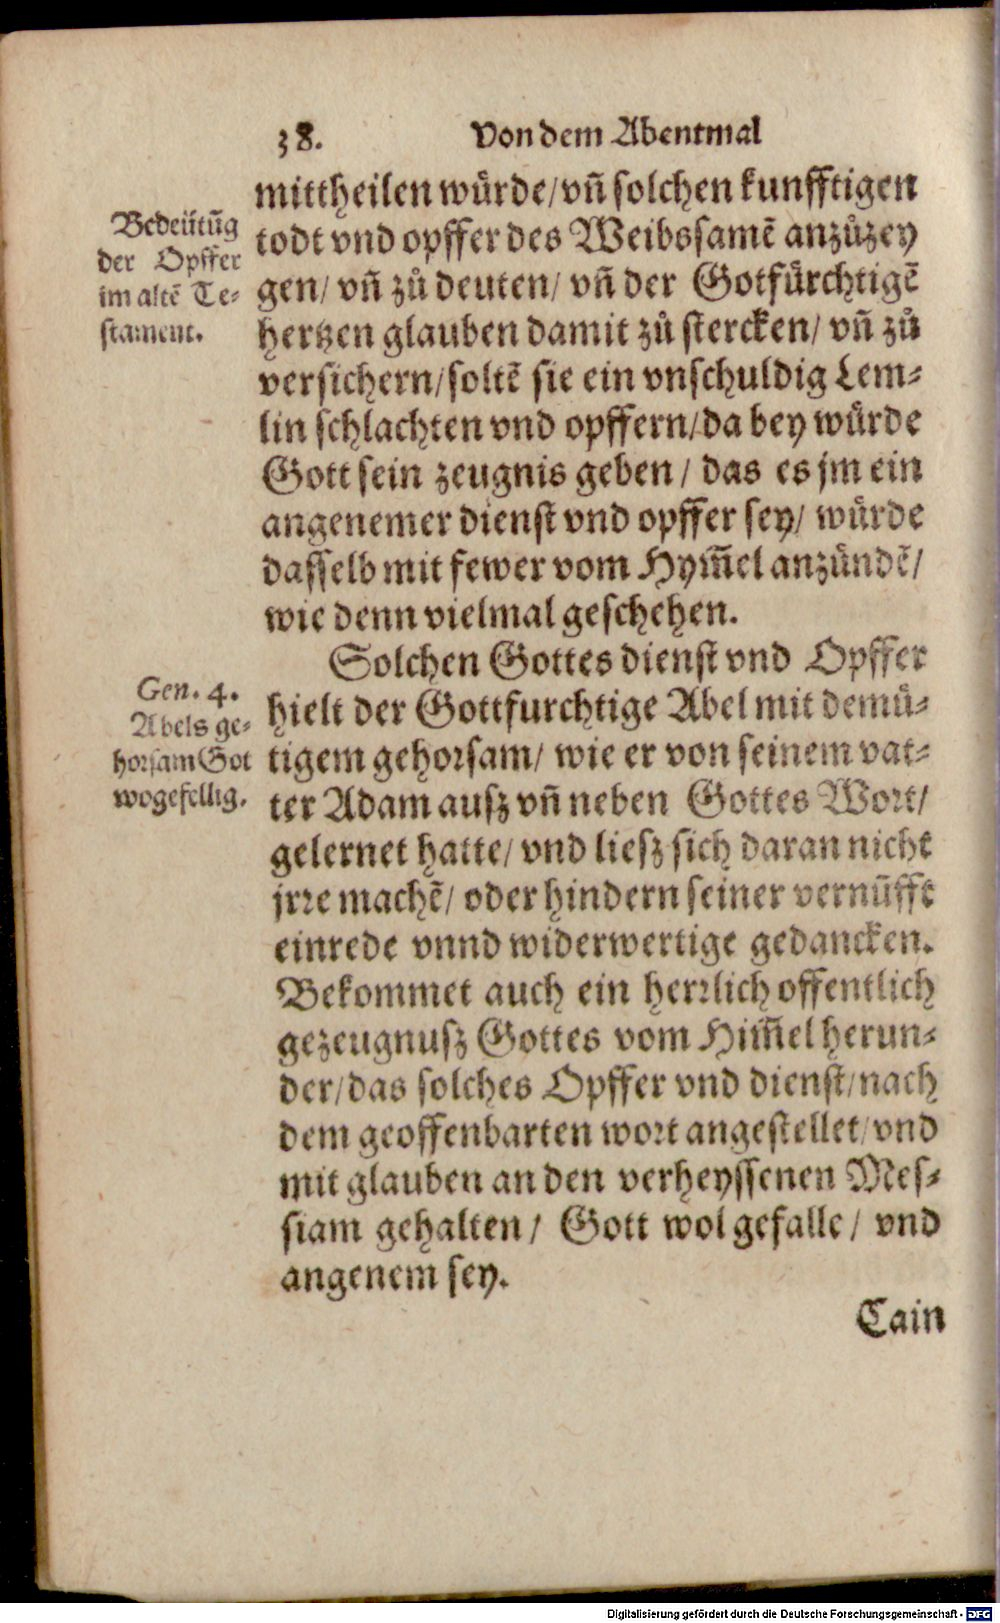 38. Von dem Abentmal
mittheilen würde/ vñ solchen kunfftigen
todt vnd opffer des Weibssamẽ anzůzey
gen/ vñ zů deuten/ vñ der Gotfürchtigẽ
hertzen glauben damit zů stercken/ vñ zů
versichern/ soltẽ sie ein vnschuldig Lem-
lin schlachten vnd opffern/ da bey würde
Gott sein zeugnis geben/ das es jm ein
angenemer dienst vnd opffer sey/ würde
dasselb mit fewer vom Hym̃el anzündẽ/
wie denn vielmal geschehen.
Bedeütũg
der Opffer
im altẽ Te-
stament.
Solchen Gottes dienst vnd Opffer
hielt der Gottfurchtige Abel mit demü-
tigem gehorsam/ wie er von seinem vat-
ter Adam ausz vñ neben Gottes Wort/
gelernet hatte/ vnd liesz sich daran nicht
jrre machẽ/ oder hindern seiner vernũfft
einrede vnnd widerwertige gedancken.
Bekommet auch ein herrlich offentlich
gezeugnusz Gottes vom Him̃el herun-
der/ das solches Opffer vnd dienst/ nach
dem geoffenbarten wort angestellet/ vnd
mit glauben an den verheyssenen Mes-
siam gehalten/ Gott wol gefalle/ vnd
angenem sey.
Gen. 4.
Abels ge-
horsam Got
wogefellig.
Cain
Digitalisierung gefördert durch die Deutsche Forschungsgemeinschaft - DFG